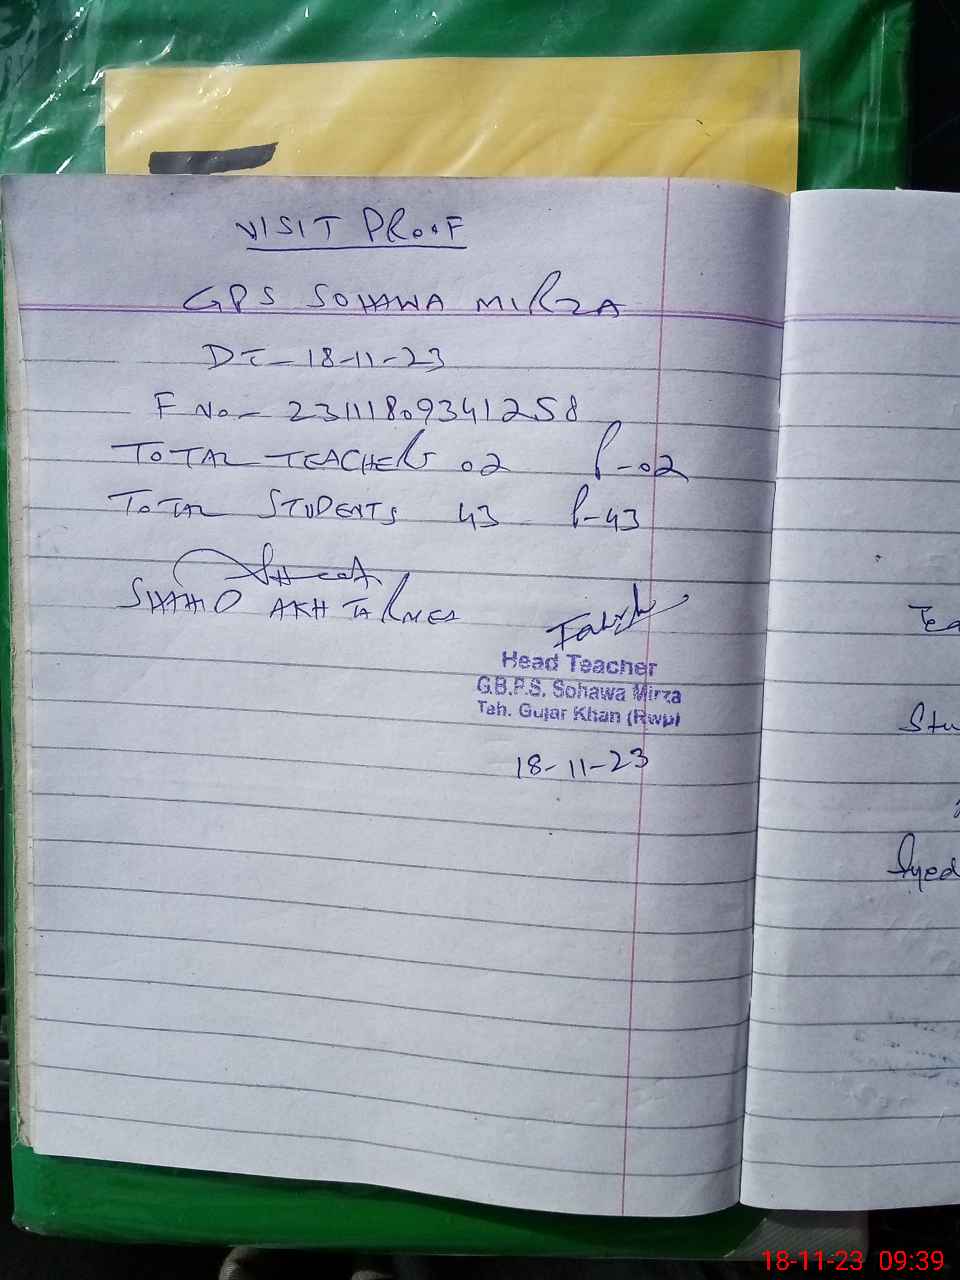 VISIT PROOF
GPS SOHAWA MIRZA
DT- 18-11-23
F No- 23111809341258
TOTAL TEACHER 02 P-02
TOTAL STUDENTS 43 P-43
SHAHID AKHTAR MEA
Head Teacher
G.B.P.S. Sohawa Mirza
Teh. Gujar Khan (Rwp)
18-11-23
Tea
Stu
Syed
18-11-23 09:39